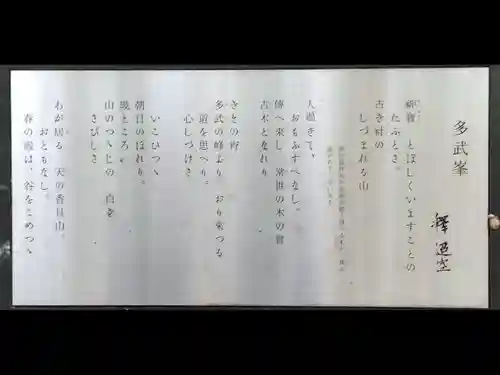 多武峯
釋迢空
神寶 とぼしくいますことの
たふとさ。
古き社の
しづまれる山
人過ぎて、
おもふすべなし。
傳へ來し 常世の木の實
古木となれり
きその宵
多武の峰より おり來つる
道を思へり。
心しづけさ
いこひつゝ
朝日のぼれり。
幾ところ
山のつゝじの 白き
さびしさ
わが居る 天の香具山。
おともなし。
春の霞は、谷をこめつゝ